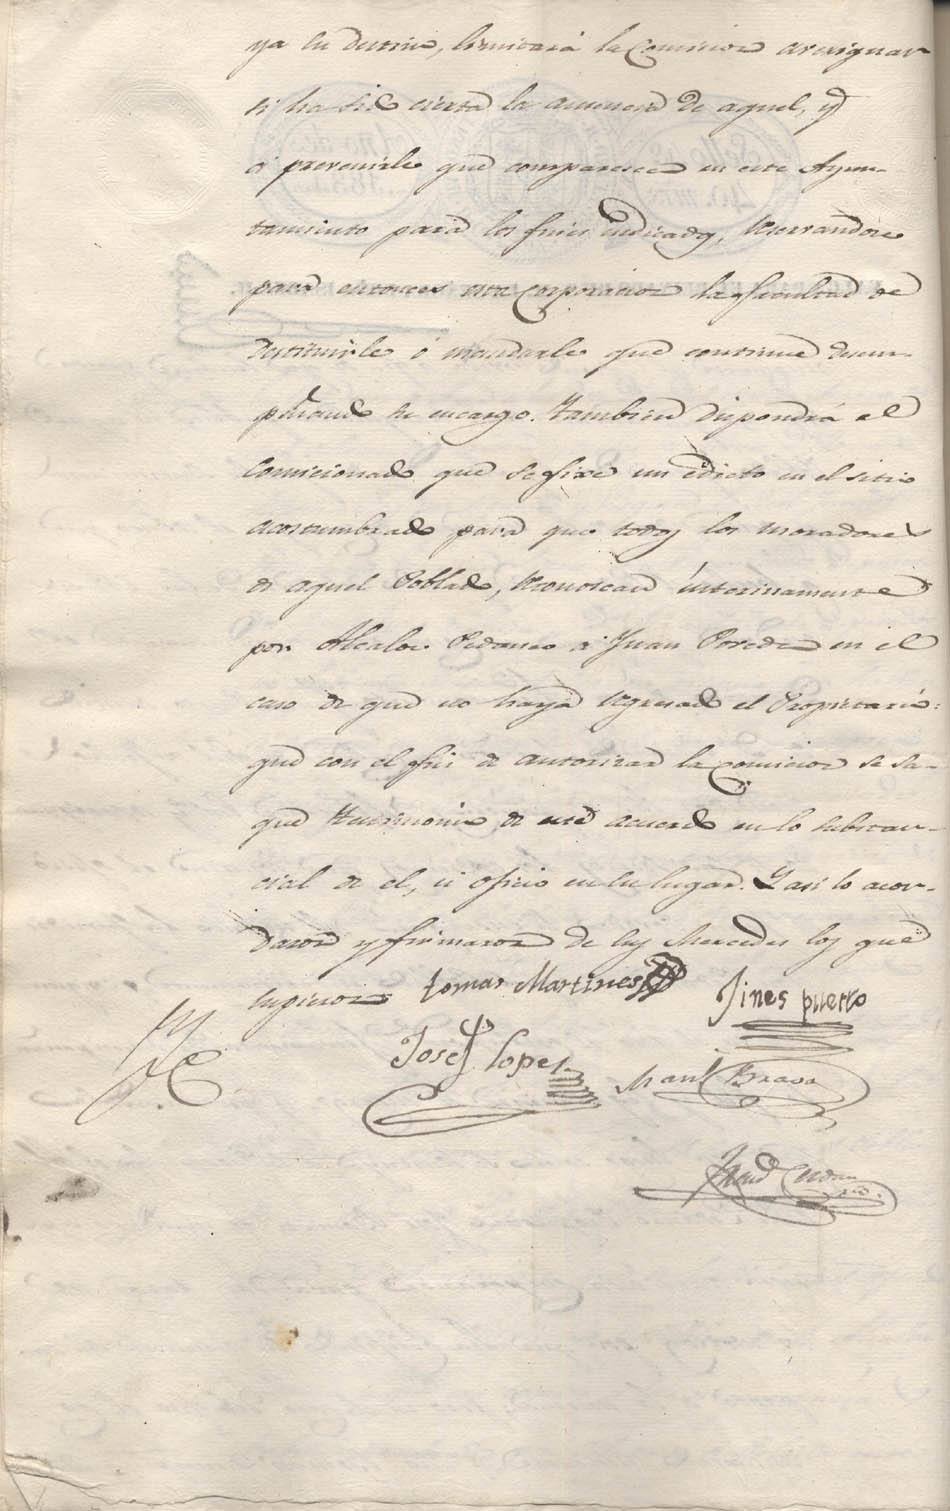 ya su destino, limitará la Comision averiguar
si ha sido cierta la ausencia de aquel, y
á prevenirle que comparesca en este Ayun-
tamiento para los fines indicados, reservandose
para entonces esta Corporacion la facultad de
destituirle ó mandarle que continue desem-
peñando su encargo. Tambien dispondrá el
Comisionado que se fixe un edicto en el sitio
acostumbrado para que todos los moradores
de aquel Poblado, reconoscan interinamente
por Alcalde Pedaneo a Juan Paredes en el
caso de que no haya regresado el Propietario:
que con el fin de autorizar la Comision se sa-
que testimonio de este acuerdo en lo substan-
cial de el, ú oficio en su lugar. Y asi lo acor-
daron y firmaron de sus Mercedes los que
supieron
tomas Martines
Jines puerro
Josef Lopes
Man.l Brasa